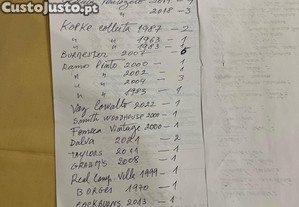 CustoJusto.pt
" 2018 - 3
KOPKE colheita 1987 - 2
" " 1963 - 1
" " 1983 - 1
BURMESTER 2007 - 6
Ramos Pinto 2000 - 1
" " 2002 - 1
" " 2004 - 3
" " 1983 - 1
Vaz Carvalho 2022 - 1
SMITH WOODHOUSE 2000 - 1
Fonseca Vintage 2000 - 1
Dalva 2021 - 2
TAYLORS 2011 - 1
GRAHAM'S 2008 - 1
Real Comp. Velh 1999 - 1
BORGES 1970 - 1
COCKBURNS 2013 - 1